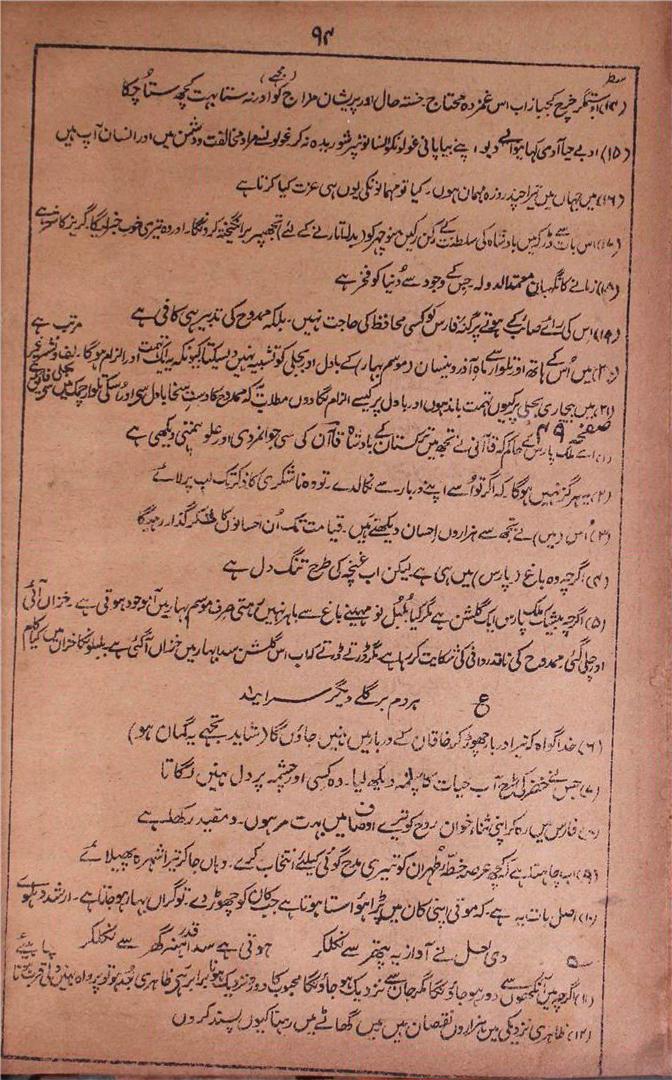 ۹۴
سطر
(۱۴) او ستمگر چرخ کجباز اب اس غمزدہ محتاج۔ خستہ حال اور پریشان مزاج کو (مجھے) اور نہ ستا بہت کچھ ستا چکا
(۱۵) او بے حیا آدمی کہا ہوا لے دیو۔ اپنے بیاپانی غولونکو انسانونپر شوریدہ نہ کر غولونسے مراد مخالفت و دشمن ہیں اور انسان آپ ہیں
(۱۶) میں جہاں میں تیرا چند روزہ مہمان ہوں۔ کیا تو مہمانونکی یوں ہی عزت کیا کرتا ہے
(۱۷) اس بات سے ڈر کہیں بادشاہ کی سلطنت کے رکن رکین منوچہر کو (بدلا اتارنے کے لئے) تجھپر برانگیختہ کردونگا۔ اور وہ تیری خوب خبر لیگا۔ گریز کا شعر ہے
(۱۸) زمانے کا نگہبان معتمدالدولہ جس کے وجود سے دُنیا کو فخر ہے
(۱۹) اس کی رائے صائب کے ہوتے ہر گز فارس کو کسی محافظ کی حاجت نہیں۔ بلکہ ممدوح کی تدبیر ہی کافی ہے
(۲۰) میں اُس کے ہاتھ اور تلوار سے ماہ آذر و نیسان (موسم بہار) کے بادل اور بجلی کو تشبیہ نہیں دیسکتا کیونکہ یہ ایک تہمت اور الزام ہوگا۔ لف و نشر غیر مرتب ہے
(۲۱) میں بیچاری بجلی پر کیوں تہمت باندہوں اور بادل پر کیسے الزام لگا دوں مطلب کہ ممدوح کا دست سخا بادل سے اور اُسکی تلوار چمک میں بجلی سے
صفحہ ۴۹
(۱) اے ملک پارس کے حاکم کہ قاآنی نے تجھ میں ترکستان کے بادشاہ قاآن کی سی جوانمردی اور علو ہمتی دیکھی ہے
(۲) یہ ہرگز نہیں ہوگا۔ کہ اگر تو اُسے اپنے دربار سے نکالدے۔ تو وہ ناشکری کا ذکر تک لب پر لائے
(۳) اُس (میں) نے تجھ سے ہزاروں احسان دیکھتے ہیں۔ قیامت تک اُن احسانوں کا شکر گذار رہیگا
(۴) گرچہ وہ باغ (پارس) میں ہی ہے۔ لیکن اب غنچہ کی طرح تنگ دل ہے
(۵) اگرچہ بیشک ملک پارس ایک گلشن ہے مگر کیا بلبل نو مہینے باغ سے باہر نہیں رہتی صرف موسم بہار میں آ موجود ہوتی ہے۔ خزاں آئی
اور چلی گئی۔ ممدوح کی ناقدردانی کی شکایت کر رہا ہے مگر ڈرتے ڈرتے کہ اب اس گلشن سدا بہار میں خزاں آگئی ہے بلبلونکا خزاں میں کیا کام
ع ہر دم بر گلے دیگر سرایند
(۶) خدا گواہ کہ تیرا دربار چھوڑ کر خاقان کے دربار میں نہیں جاؤں گا (شاید تجھے یہ گمان ہو)
(۷) جس نے خضر کی طرح آب حیات کا چشمہ دیکھ لیا۔ وہ کسی اور چشمہ پر دل نہیں لگاتا
(۸) فارس میں رہ کر اپنی ثناء خوان روح کو تیرے اوصاف میں بہت مرہوں۔ و مقید رکھا ہے
(۹) اب چاہتا ہے کہ کچھ عرصہ خطۂ طہران کو تیری مدح گوئی کیلئے انتخاب کرے۔ وہاں جا کر تیرا شہرہ پھیلائے
(۱۰) اصل بات یہ ہے۔ کہ موتی اپنی کان میں پڑا ہوا سستا ہوتا ہے جب کان کو چھوڑ دے۔ تو گراں بہا ہو جاتا ہے۔ ارشد دہلوی
دی لعل نے آواز یہ پتھر سے نکلکر ہوتی ہے سدا قدر ہنر گھر سے نکلکر
(۱۱) اگرچہ میں آنکھوں سے دور ہو جاؤنگا مگر جان سے نزدیک ہو جاؤنگا محبوب کا دور و نزدیک ہونا برابر ہے ظاہری بُعد ہو تو پرواہ نہیں دلی قرب ہونا چاہیئے
(۱۲) ظاہری نزدیکی میں ہزاروں نقصان ہیں میں گھاٹے میں رہنا کیوں پسند کروں